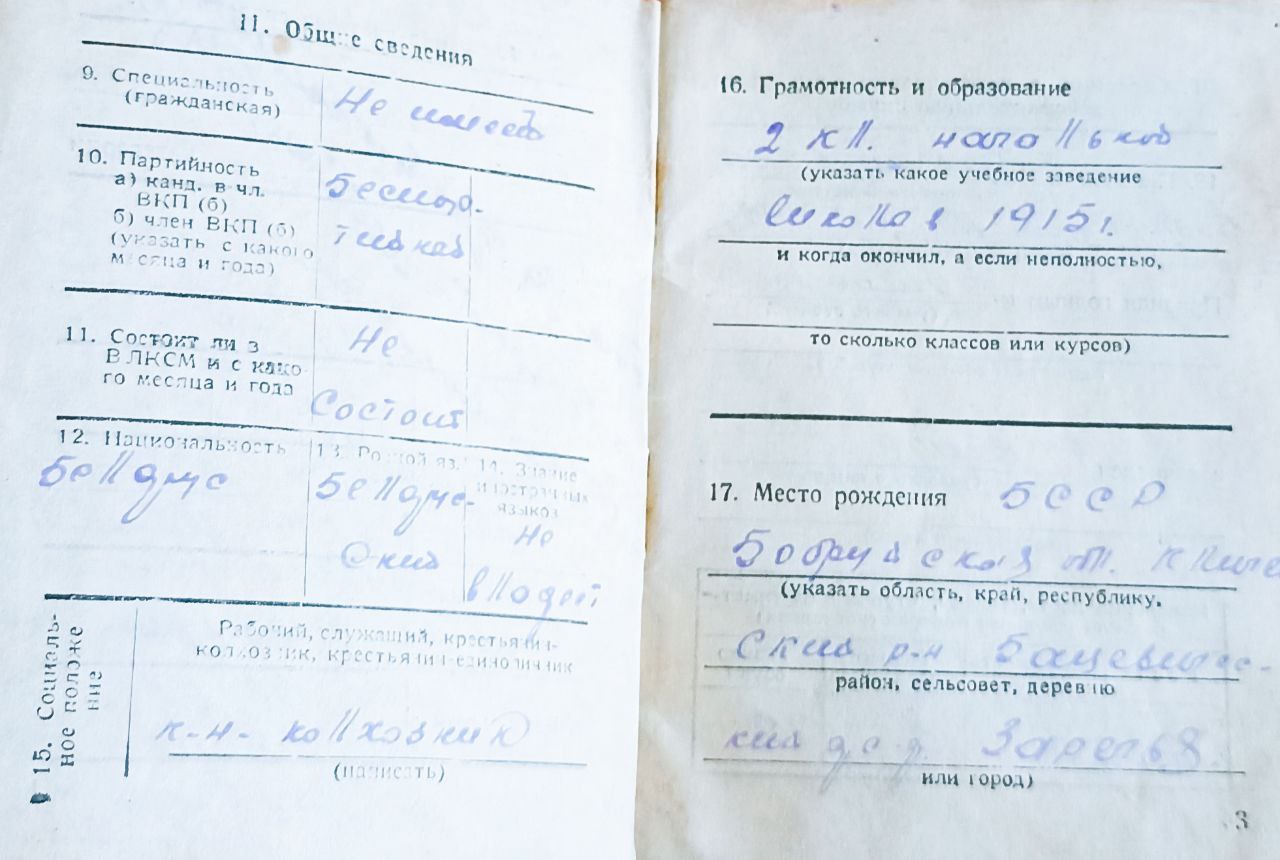 11. Общие сведения
9. Специальность
(гражданская)
Не имеет
10. Партийность
а) канд. в чл.
ВКП (б)
б) член ВКП (б)
(указать с какого
месяца и года)
Беспар-
тийный
11. Состоит ли в
ВЛКСМ и с како-
го месяца и года
Не
состоит
12. Национальность
Беларус
13. Родной яз.
Беларус-
ский
14. Знание
иностранных
языков
Не
владеет
15. Социаль-
ное положе
ние
Рабочий, служащий, крестьянин-
колхозник, крестьянин-единоличник
к-н- колхозник
(написать)
16. Грамотность и образование
2 кл. начальной
(указать какое учебное заведение
школы в 1915 г.
и когда окончил, а если неполностью,
то сколько классов или курсов)
17. Место рождения БССР
Бобруйская обл.
(указать область, край, республику,
ский р-н
район, сельсовет, деревню
кий дер. Заречья
или город)
3